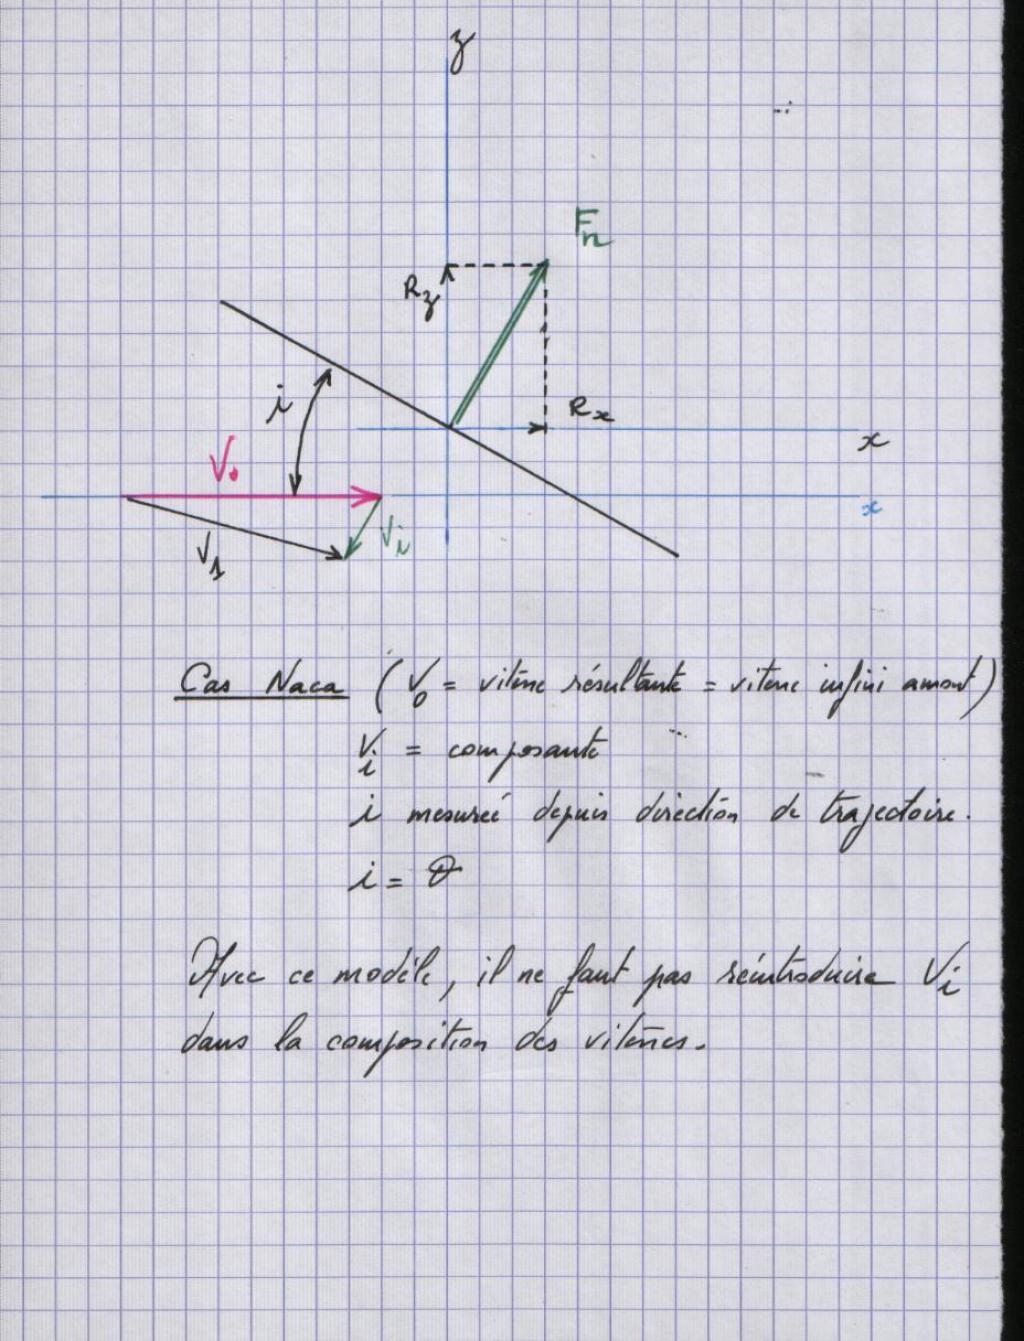 z
Fn
Rz
i
Rx
x
V.
x
Vi
V1
Cas Naca (V0 = vitesse résultante = vitesse infini amont)
Vi = composante
i mesurée depuis direction de trajectoire.
i = θ
Avec ce modéle, il ne faut pas réintroduire Vi
dans la composition des vitesses.